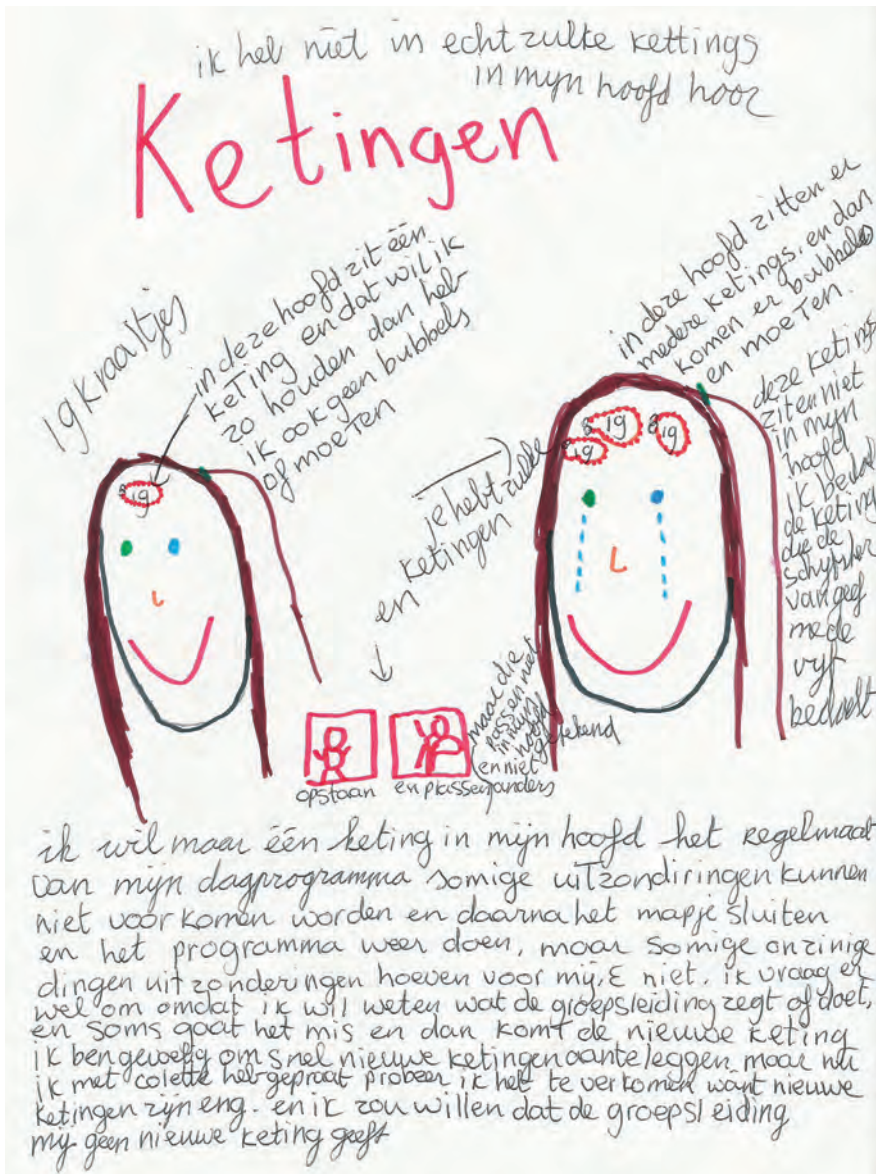 ik heb niet in echt zulke kettings
in mijn hoofd hoor
Ketingen
19 kraaltjes
in deze hoofd zit één
keting en dat wil ik
zo houden dan heb
ik ook geen bubbels
of moeten
in deze hoofd zitten er
medere ketings. en dan
komen er bubbels
en moeten.
deze keting
ziten niet
in mijn
hoofd
ik bedoel
de keting
die de
schrijfster
van geef
me de
vijf
bedoelt
je hebt zulke
en ketingen
8 19
8 19
8 19
8 19
maar die
passen niet
in mijn
hoofd
getekend
en niet
anders
opstaan
en plassen
ik wil maar één keting in mijn hoofd het regelmaat
van mijn dagprogramma somige uitzondiringen kunnen
niet voorkomen worden en daarna het mapje sluiten
en het programma weer doen, maar somige onzinige
dingen uitzonderingen hoeven voor mij. E niet. ik vraag er
wel om omdat ik wil weten wat de groepsleiding zegt of doet,
en soms gaat het mis en dan komt de nieuwe keting
ik ben gevoelig om snel nieuwe ketingen aan te leggen maar nu
ik met colette heb gepraat probeer ik het te verkomen want nieuwe
ketingen zijn eng. en ik zou willen dat de groepsleiding
mij geen nieuwe keting geeft